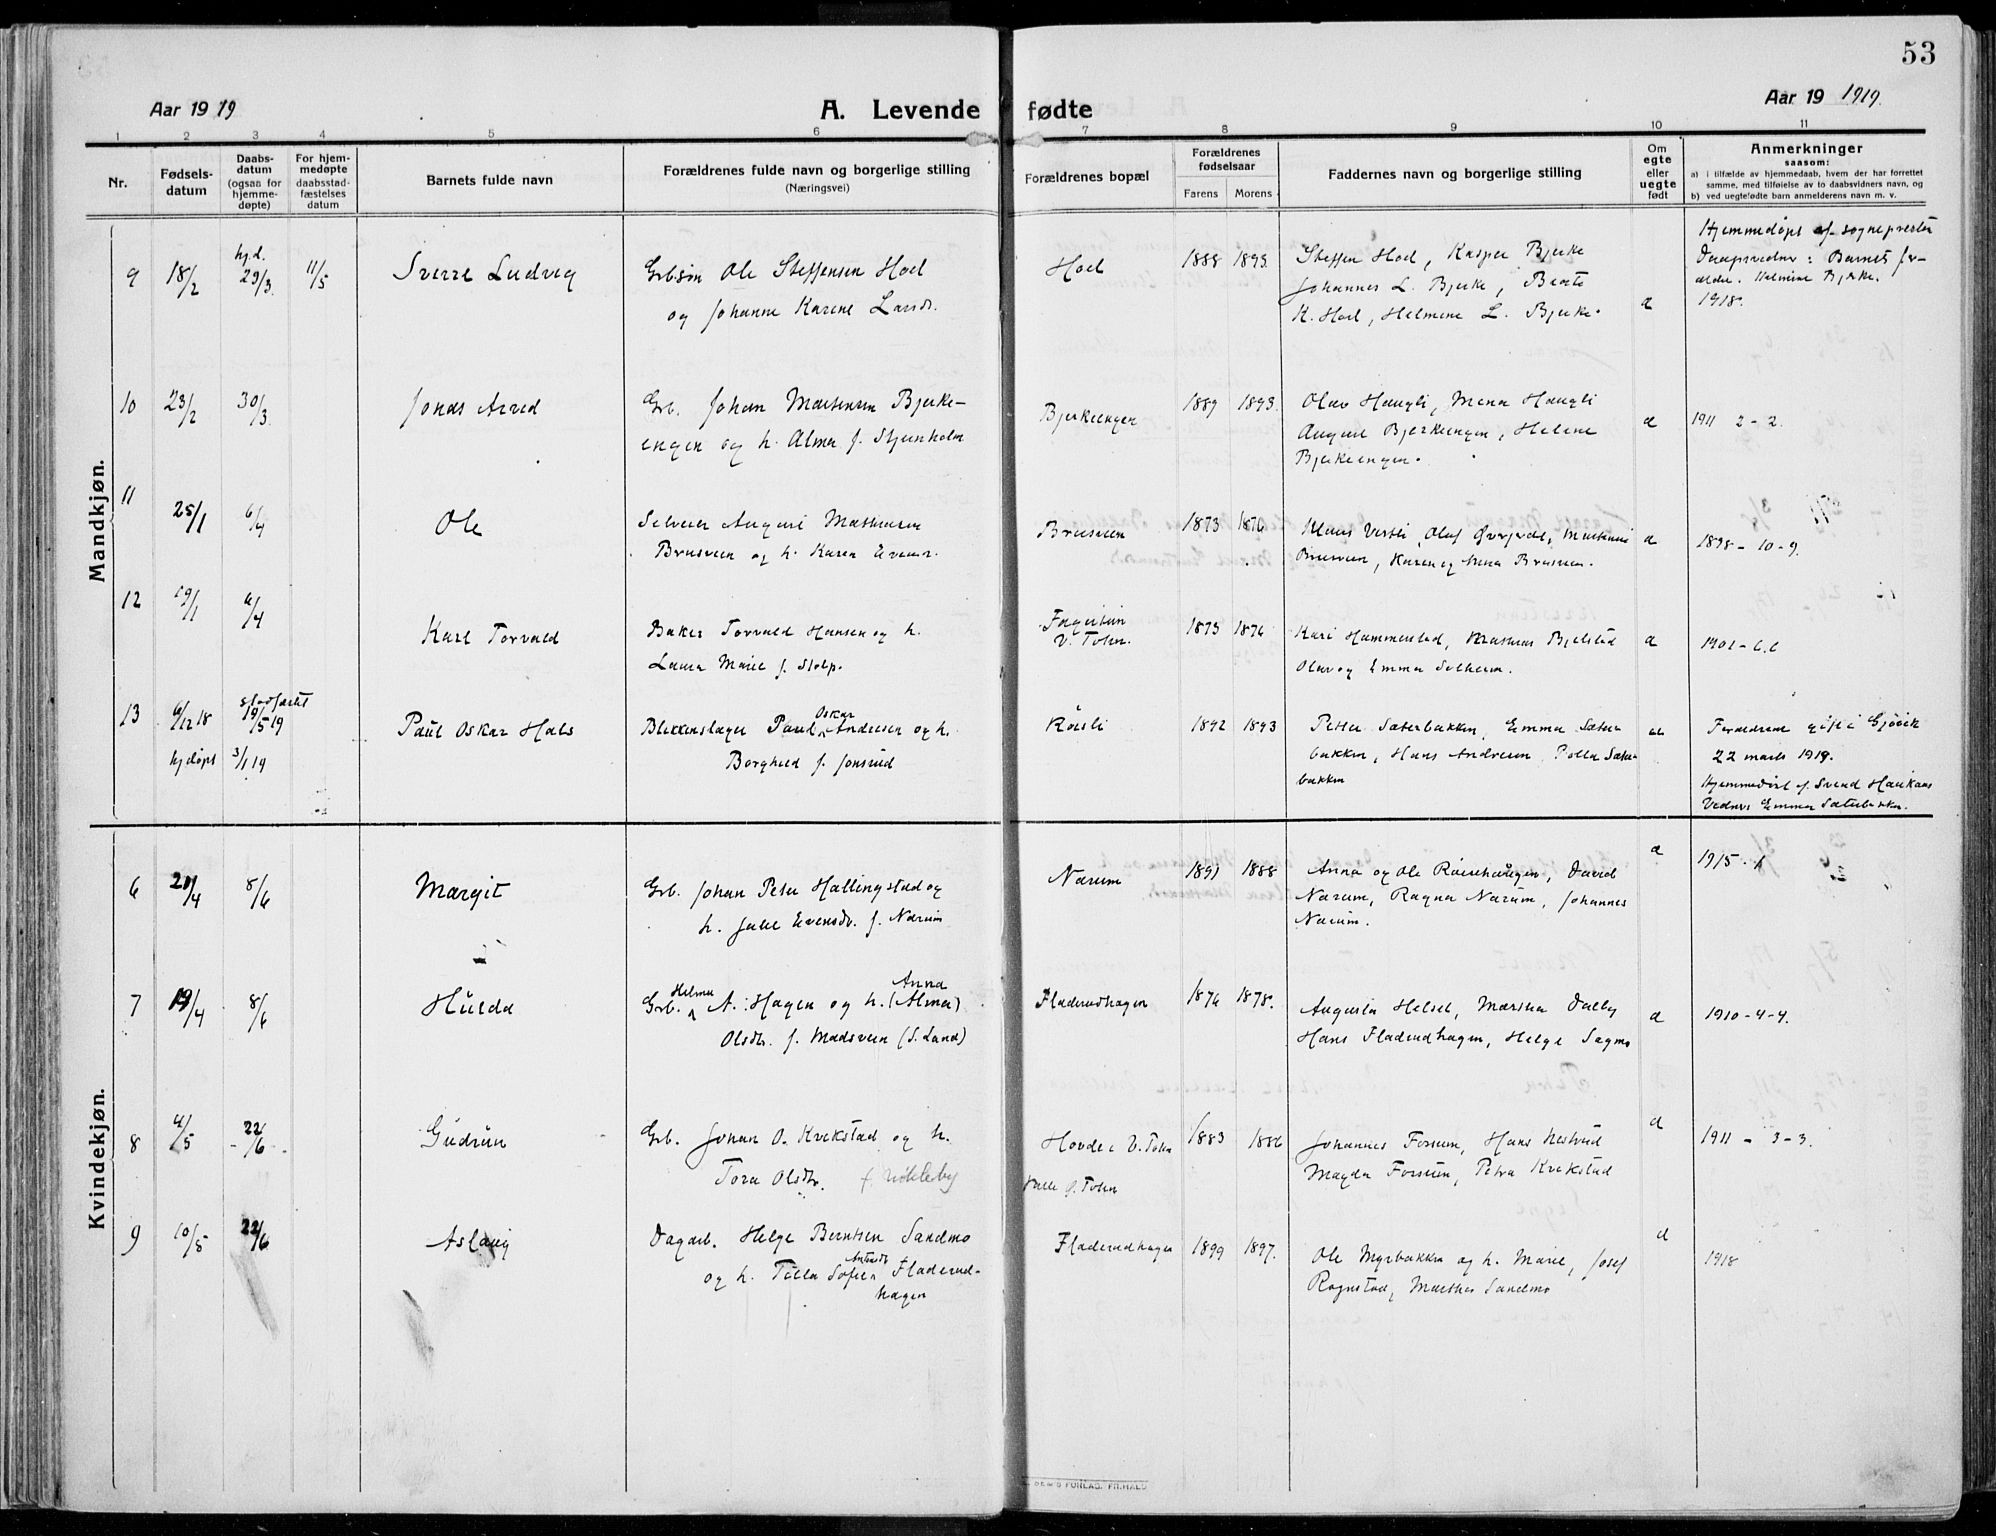 53
Aar 19 19
A. Levende fødte
Aar 19 1919.
1 2 3 4 5 6 7 8 9 10 11
Nr.
Fødsels-
datum
Daabs-
datum
(ogsaa for
hjemme-
døpte)
For hjem-
medøpte
daabsstad-
fæstelses
datum
Barnets fulde navn
Forældrenes fulde navn og borgerlige stilling
(Næringsvei)
Forældrenes bopæl
Forældrenes
fødselsaar
Farens Morens
Faddernes navn og borgerlige stilling
Om
egte
eller
uegte
født
Anmerkninger
saasom:
a) i tilfælde av hjemmedaab, hvem der har forrettet
samme, med tilføielse av to daabsvidners navn, og
b) ved uegtefødte barn anmelderens navn m. v.
Mandkjøn.
9 18/2 hj.d. 29/3. 11/5 Sverre Ludvig Grb.søn Ole Steffensen Hoel Hoel 1888 1893. Steffen Hoel, Kasper Bjerke
og Johanne Karene Larsdr. Johannes L. Bjerke, Beate
K. Hoel, Helmene L. Bjerke.
Hjemmedøpt af sogneprester
: Barnets for-
ældre. Helmine Bjerke.
1918.
10 23/2 30/3 Jonas Arved Grb. Johan Martinsen Bjerke- Bjerkeengen 1889 1893. Olav Haugli, Mena Haugli
engen og h. Alma f. Stjernholm August Bjerkeengen, Helene a 1911 2-2.
Bjerkeengen.
11 25/1 6/4 Ole August Mathisen Brusveen 1873 1876 Olaf
Brusveen og h. Karen Evensdr. Brusveen, Karen og Anna Brusveen. a 1898-10-9.
12 19/1 6/4 Karl Torvald Baker Torvald Hansen og h. V. Toten. 1875 1876 Kari Hammerstad, Bjelstad a 1901-6.6
Laura Marie f. Stolp. Olav og Emma Solheim.
13 6/12 18 stadfæstet 19/5 19 Paul Oskar Hals Blikkenslager Paul Oskar Andersen og h. Røisli 1892 1893 Petter Sæterbakken, Emma Sæter
hjdøpt 3/1 19 Borghild f. Jonsrud bakken, Hans Andersen, Sæter
bakken
Forældrene gift i Gjøvik
22 marts 1919.
Hjemmedøbt af Svend Haukaas
Vidner: Emma Sæterbakken.
Kvindekjøn.
6 20/4 8/6 Margit Grb. Johan Peter Hallingstad og Narum 1891 1888 Anna og Ole Røisehaugen, David a 1915. 1
h. Julie Evensdr. f. Narum Narum, Ragna Narum, Johannes
Narum.
7 19/4 8/6 Hulda Grb. Helmer A. Hagen og h. (Alma) Anna Fladerudhagen 1876 1878. Augusta Helset, Martha Dalby a 1910-4-4.
Olsdtr. f. Madsveen (S. Land) Hans Fladerudhagen, Helge Sagmo
8 4/5 22/6 Gudrun Grb. Johan O. Kvekstad og h. Hovde i V. Toten 1883 1886 Johannes Forsum, Hans a 1911 - 3-3.
Tora Olsdtr. f. Nøkleby Toten Magda Forsum, Petra Kvekstad
9 10/5 22/6 Aslaug Dagarb. Helge Berntsen Sandmo Fladerudhagen 1899 1897. Ole Myrbakken og h. Marie, Josef a 1918
og h. Tilla Sofie Antonsdr. Fladerud- Rognstad, Marthea Sandmo
hagen
FORLAG. FR.HALD